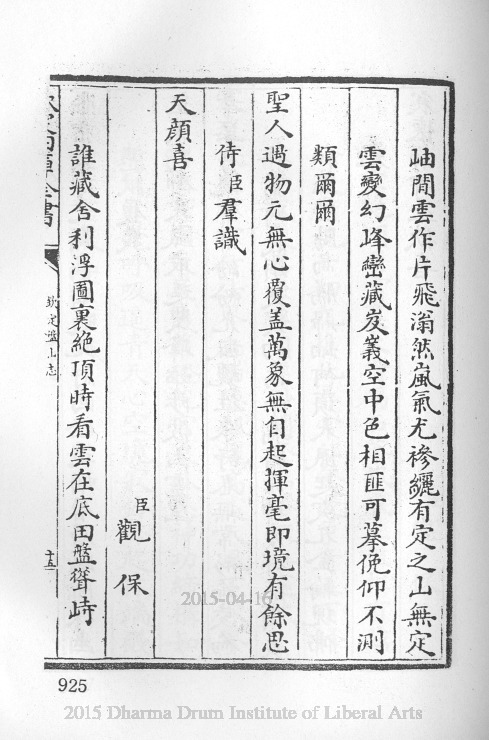 岫間雲作片飛滃然嵐氣尤襂纚有定之山無定
雲變幻峰巒藏岌嶪空中色相匪可摹俛仰不測
類爾爾
聖人過物元無心覆盖萬象無自起揮毫即境有餘思
侍臣羣識
天顔喜
臣觀保
誰藏舍利浮圖裏絶頂時看雲在底田盤聳峙
欽定四庫全書
欽定盤山志
十五
925
2015-04-16
2015 Dharma Drum Institute of Liberal Arts